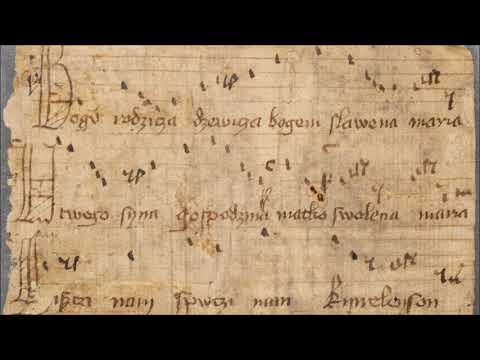 Bogv rodzicza dzewicza bogem slawena maria
U twego syna gospodzina matko swolena maria
Siszczi nam spwczi nam Kyrieleyson